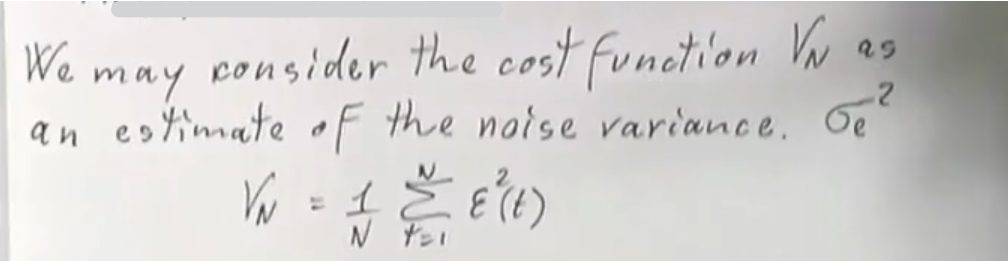 We may consider the cost function V_N as
an estimate of the noise variance. σ_e^2
V_N = 1/N Σ_{t=1}^{N} ε^2(t)